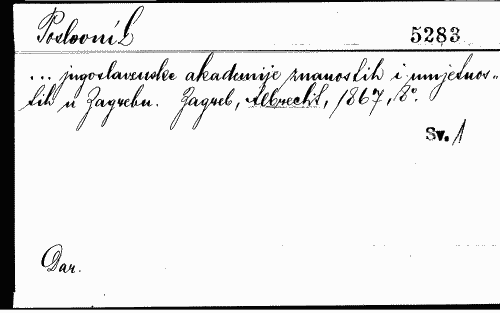 Poslovník 5283
... jugoslavenske akademije znanostih i umjetnos-
tih u Zagrebu. Zagreb, Albrecht, 1867, 8°.
Sv. 1
Dar.